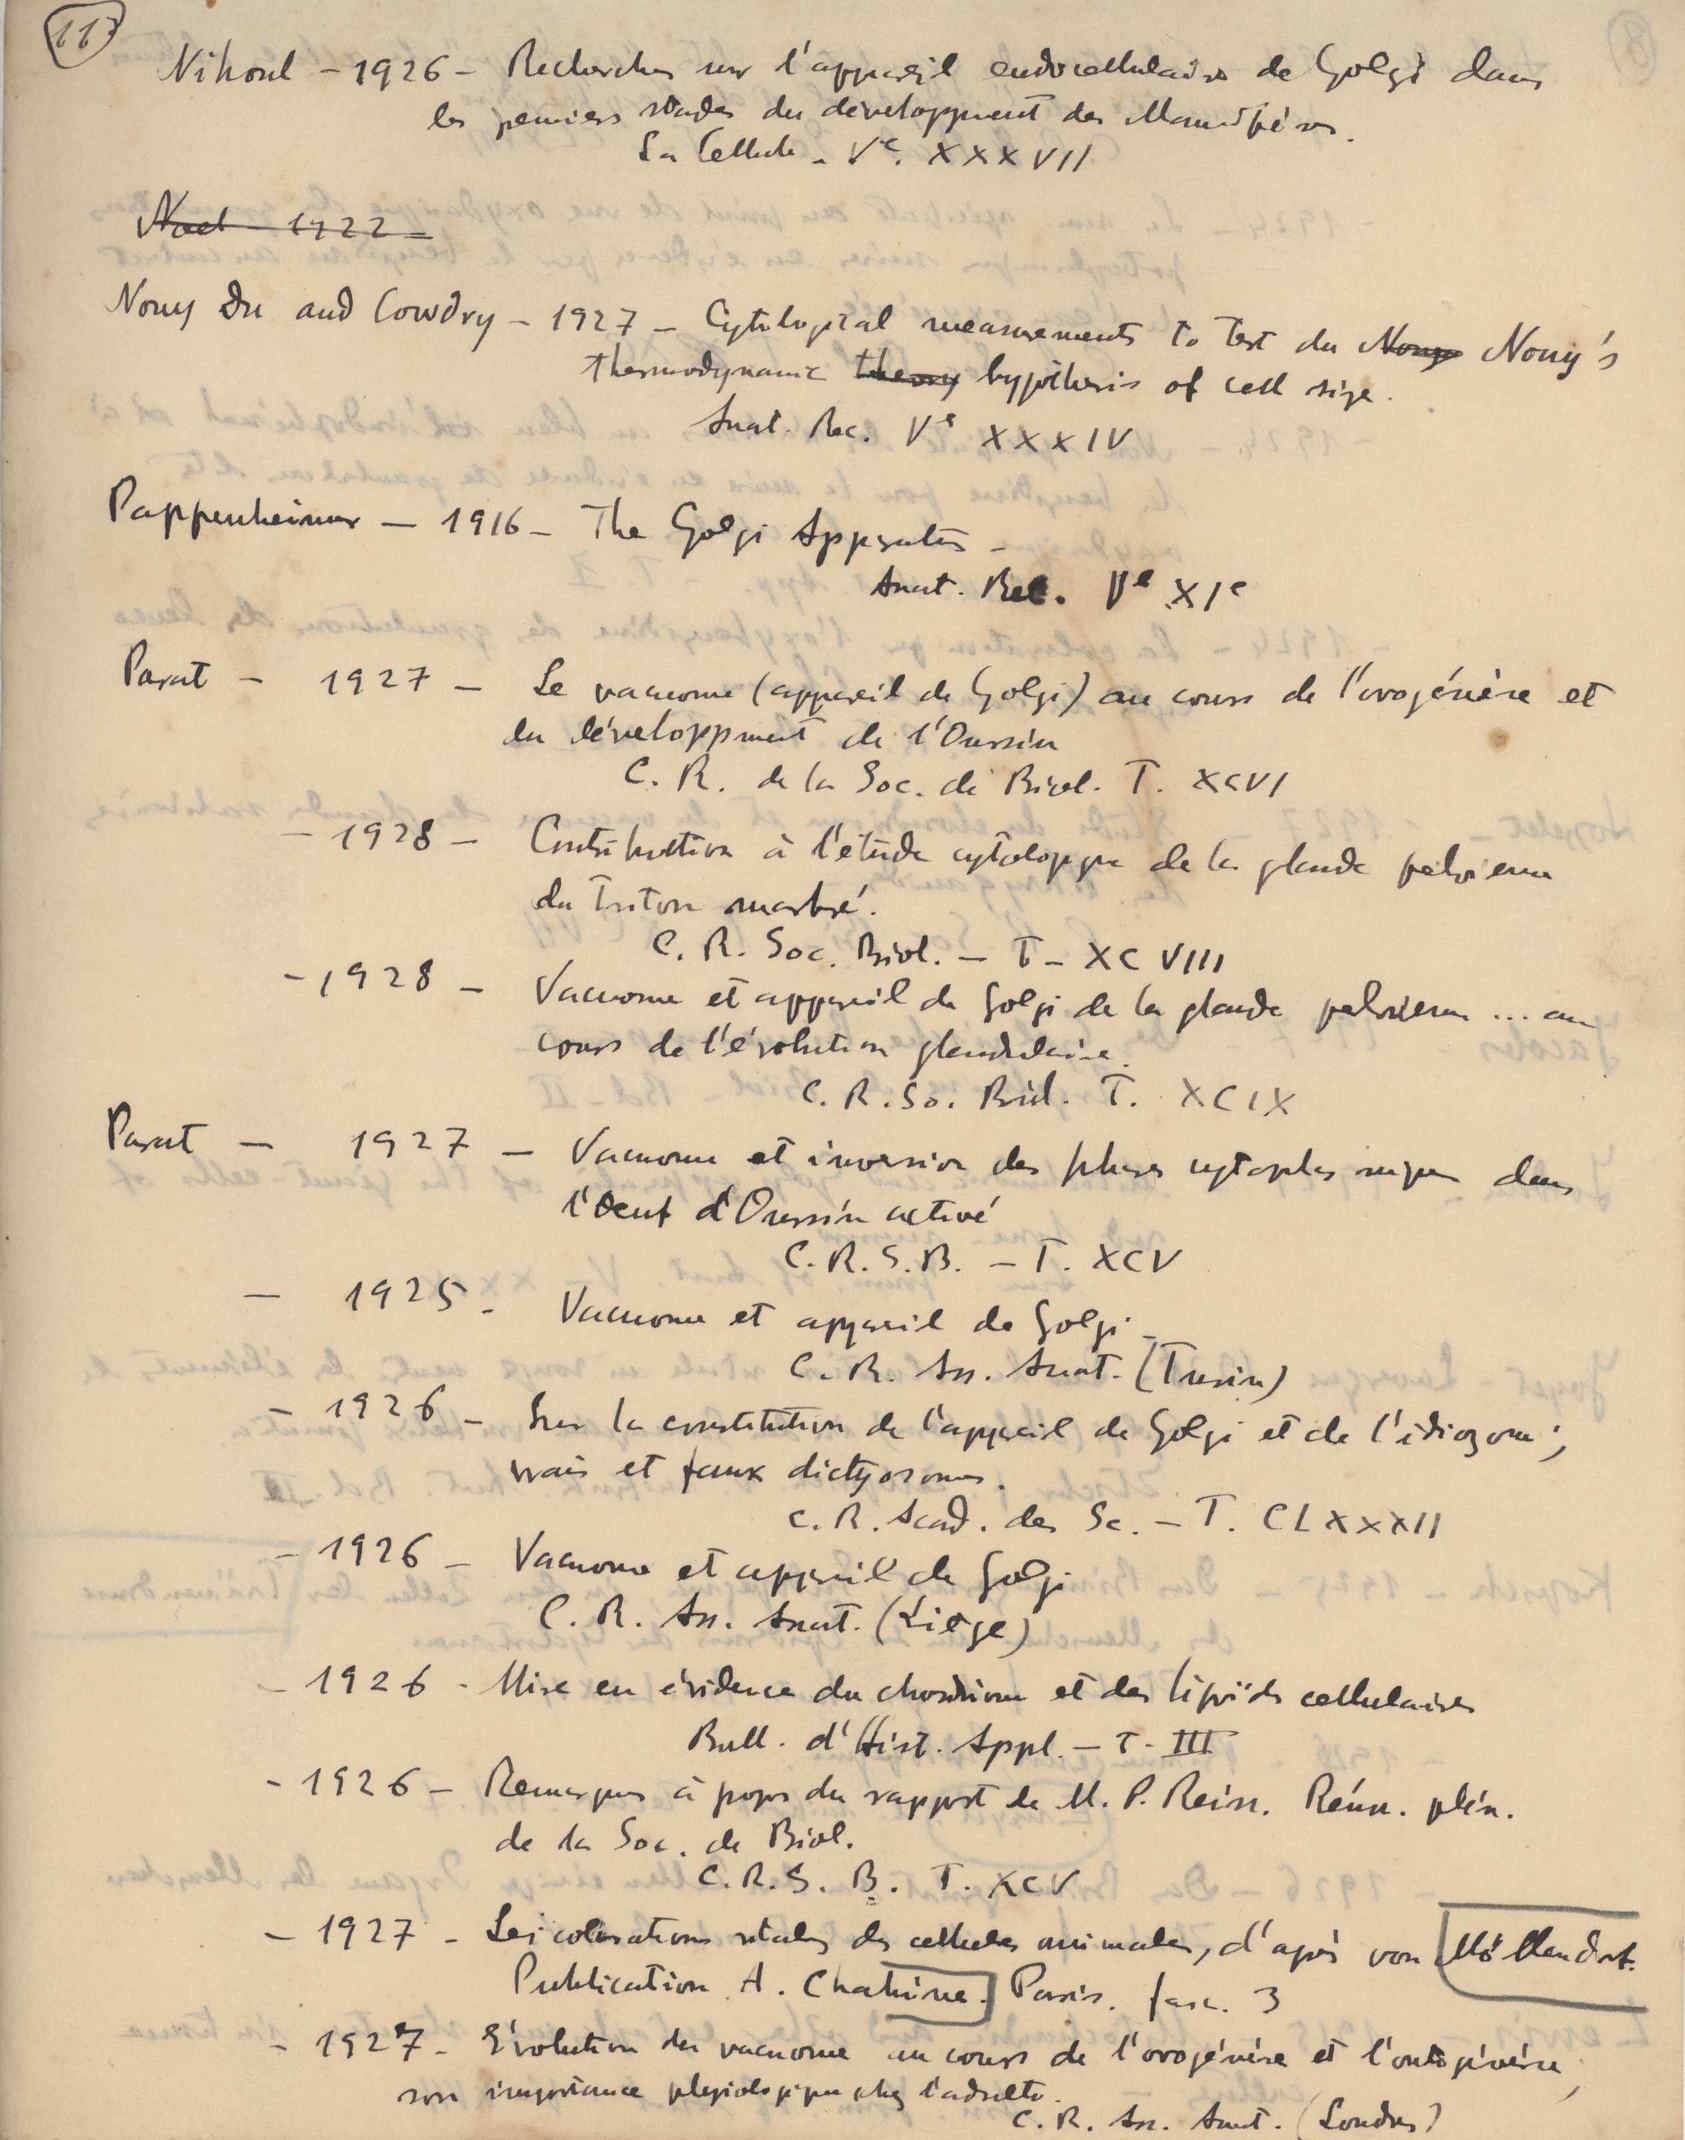 117
Nihoul - 1926 - Recherches sur l'appareil endocellulaire de Golgi dans
les premiers stades du développment des Mammifères.
La Cellule - Ve. XXXVII
Noel - 1922 -
Nouy Du and Cowdry - 1927 - Cytological measurements to test du Nouy Nouy's
thermodynamic theory hypothesis of cell size.
Anat. Rec. Ve XXXIV
Pappenheimer - 1916 - The Golgi Apparatus -
Anat. Rec. Ve XIe
Parat - 1927 - Le vacuome (appareil de Golgi) au cours de l'ovogénèse et
du développment de l'Oursin
C. R. de la Soc. de Biol. T. XCVI
- 1928 - Contribution à l'étude cytologique de la glande pelvienne
du Triton marbré.
C. R. Soc. Biol. - T - XCVIII
- 1928 - Vacuome et appareil de Golgi de la glande pelvienne ... au
cours de l'évolution glandulaire.
C. R. So. Biol. T. XCIX
Parat - 1927 - Vacuome et inversion des phases cytoplasmiques dans
l'Oeuf d'Oursin activé
C. R. S. B. - T. XCV
- 1925 - Vacuome et appareil de Golgi -
C. R. Ass. Anat. (Turin)
- 1926 - Sur la constitution de l'appareil de Golgi et de l'idiozome;
vrais et faux dictyosomes.
C. R. Acad. des Sc. - T. CLXXXII
- 1926 - Vacuome et appareil de Golgi
C. R. Ass. Anat. (Liège)
- 1926 - Mise en évidence du chondriome et des lipoïdes cellulaires
Bull. d'Hist. Appl. - T. III
- 1926 - Remarques à propos du rapport de M. P. Reiss. Réun. plén.
de la Soc. de Biol.
C. R. S. B. T. XCV
- 1927 - Les colorations vitales des cellules animales, d'après von Möllendorf.
Publication A. Chahine. Paris. fasc. 3
- 1927 - Evolution du vacuome au cours de l'ovogénèse et l'ontogénèse,
son importance physiologique chez l'adulte.
C. R. Ass. Anat. (Londres)